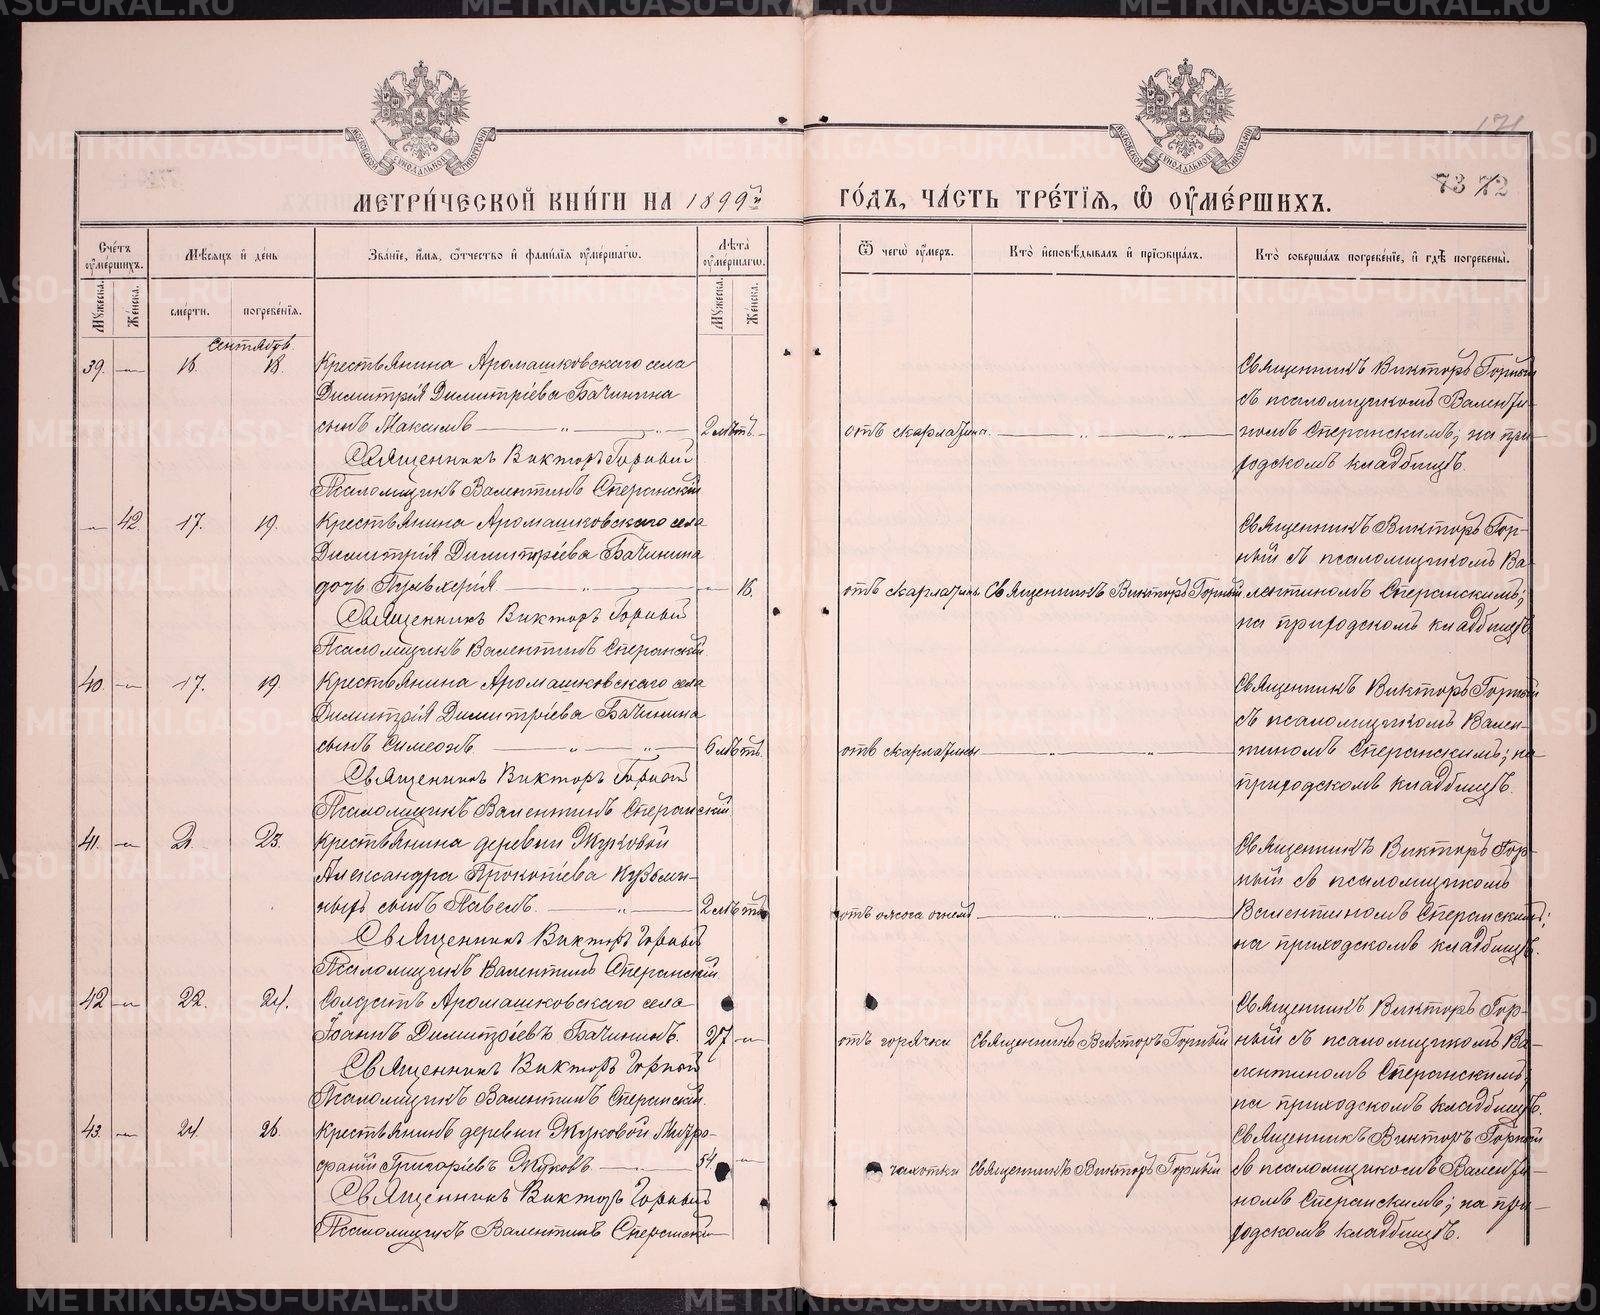 МЕТРИ́ЧЕСКОЙ КНИ́ГИ НА 1899й
ГО́ДЪ, ЧА́СТЬ ТРЕ́ТІѦ, Ѡ҆ ОУ҆МЕ́РШИХЪ.
171
73 72
Сче́тъ оу҆ме́ршихъ.
Мꙋ́жеска.
Же́нска.
Мѣ́сѧцъ и҆ де́нь
сме́рти.
погребе́нїѧ.
Зва́нїе, и҆́мѧ, ѻ҆́тчество и҆ фами́лїѧ оу҆ме́ршагѡ.
Лѣ́та оу҆ме́ршагѡ.
Мꙋ́жеска.
Же́нска.
Ѿ чегѡ̀ оу҆́меръ.
Кто̀ и҆сповѣ́дывалъ и҆ прїѡбща́лъ.
Кто̀ соверша́лъ погребе́нїе, и҆ гдѣ̀ погребены̀.
Сентябрь
39. — 16. 18. Крестьянина Аромашковскаго села
Димитрія Димитріева Бачинина
сынъ Максимъ — „ — „ — 2 лѣтъ.
Священникъ Викторъ Горный
Псаломщикъ Валентинъ Сперанскій
отъ скарлатины. — „ — „ —
Священникъ Викторъ Горный
съ псаломщикомъ Валенти-
номъ Сперанскимъ; на при-
ходскомъ кладбищѣ.
— 42 17. 19. Крестьянина Аромашковскаго села
Димитрія Димитріева Бачинина
дочь Пульхерія — „ — 16.
Священникъ Викторъ Горный
Псаломщикъ Валентинъ Сперанскій
отъ скарлатины Священникъ Викторъ Горный
Священникъ Викторъ Гор-
ный съ псаломщикомъ Ва-
лентиномъ Сперанскимъ;
на приходскомъ кладбищѣ
40. — 17. 19. Крестьянина Аромашковскаго села
Димитрія Димитріева Бачинина
сынъ Симеонъ — „ — „ — 6 лѣтъ.
Священникъ Викторъ Горный
Псаломщикъ Валентинъ Сперанскій
отъ скарлатины — „ — „ —
Священникъ Викторъ Горный
съ псаломщикомъ Вален-
тиномъ Сперанскимъ; на
приходскомъ кладбищѣ.
41. — 21. 23. Крестьянина деревни Жуковой
Александра Прокопіева Кузьми-
ныхъ сынъ Павелъ. — „ — 2 лѣтъ
Священникъ Викторъ Горный
Псаломщикъ Валентинъ Сперанскій
отъ ожога огнемъ — „ — „ —
Священникъ Викторъ Гор-
ный съ псаломщикомъ
Валентиномъ Сперанскимъ;
на приходскомъ кладбищѣ.
42 — 22. 24. Солдатъ Аромашковскаго села
Іоаннъ Димитріевъ Бачининъ. 27 —
Священникъ Викторъ Горный
Псаломщикъ Валентинъ Сперанскій.
отъ горячки Священникъ Викторъ Горный
Священникъ Викторъ Гор-
ный съ псаломщикомъ Ва-
лентиномъ Сперанскимъ;
на приходскомъ кладбищѣ.
43. — 24. 26. Крестьянинъ деревни Жуковой Митро-
фаній Григоріевъ Жуковъ — 54. —
Священникъ Викторъ Горный
Псаломщикъ Валентинъ Сперанскій
чахотки Священникъ Викторъ Горный
Священникъ Викторъ Горный
съ псаломщикомъ Валенти-
номъ Сперанскимъ; на при-
ходскомъ кладбищѣ.
METRIKI.GASO-URAL.RU